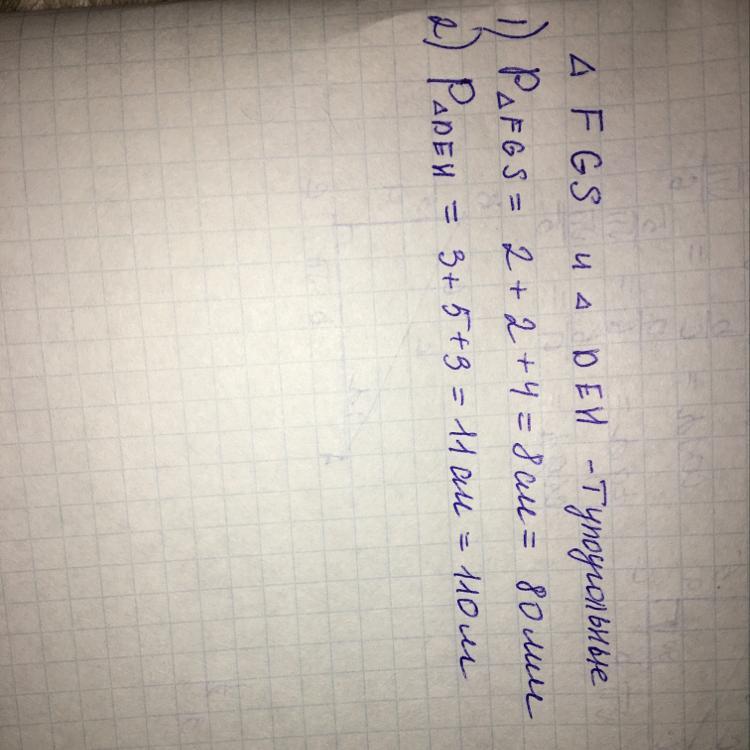 △ FGS и △ DEH - Тупоугольные
1) P△FGS = 2 + 2 + 4 = 8 см = 80 мм
2) P△DEH = 3 + 5 + 3 = 11 см = 110 м